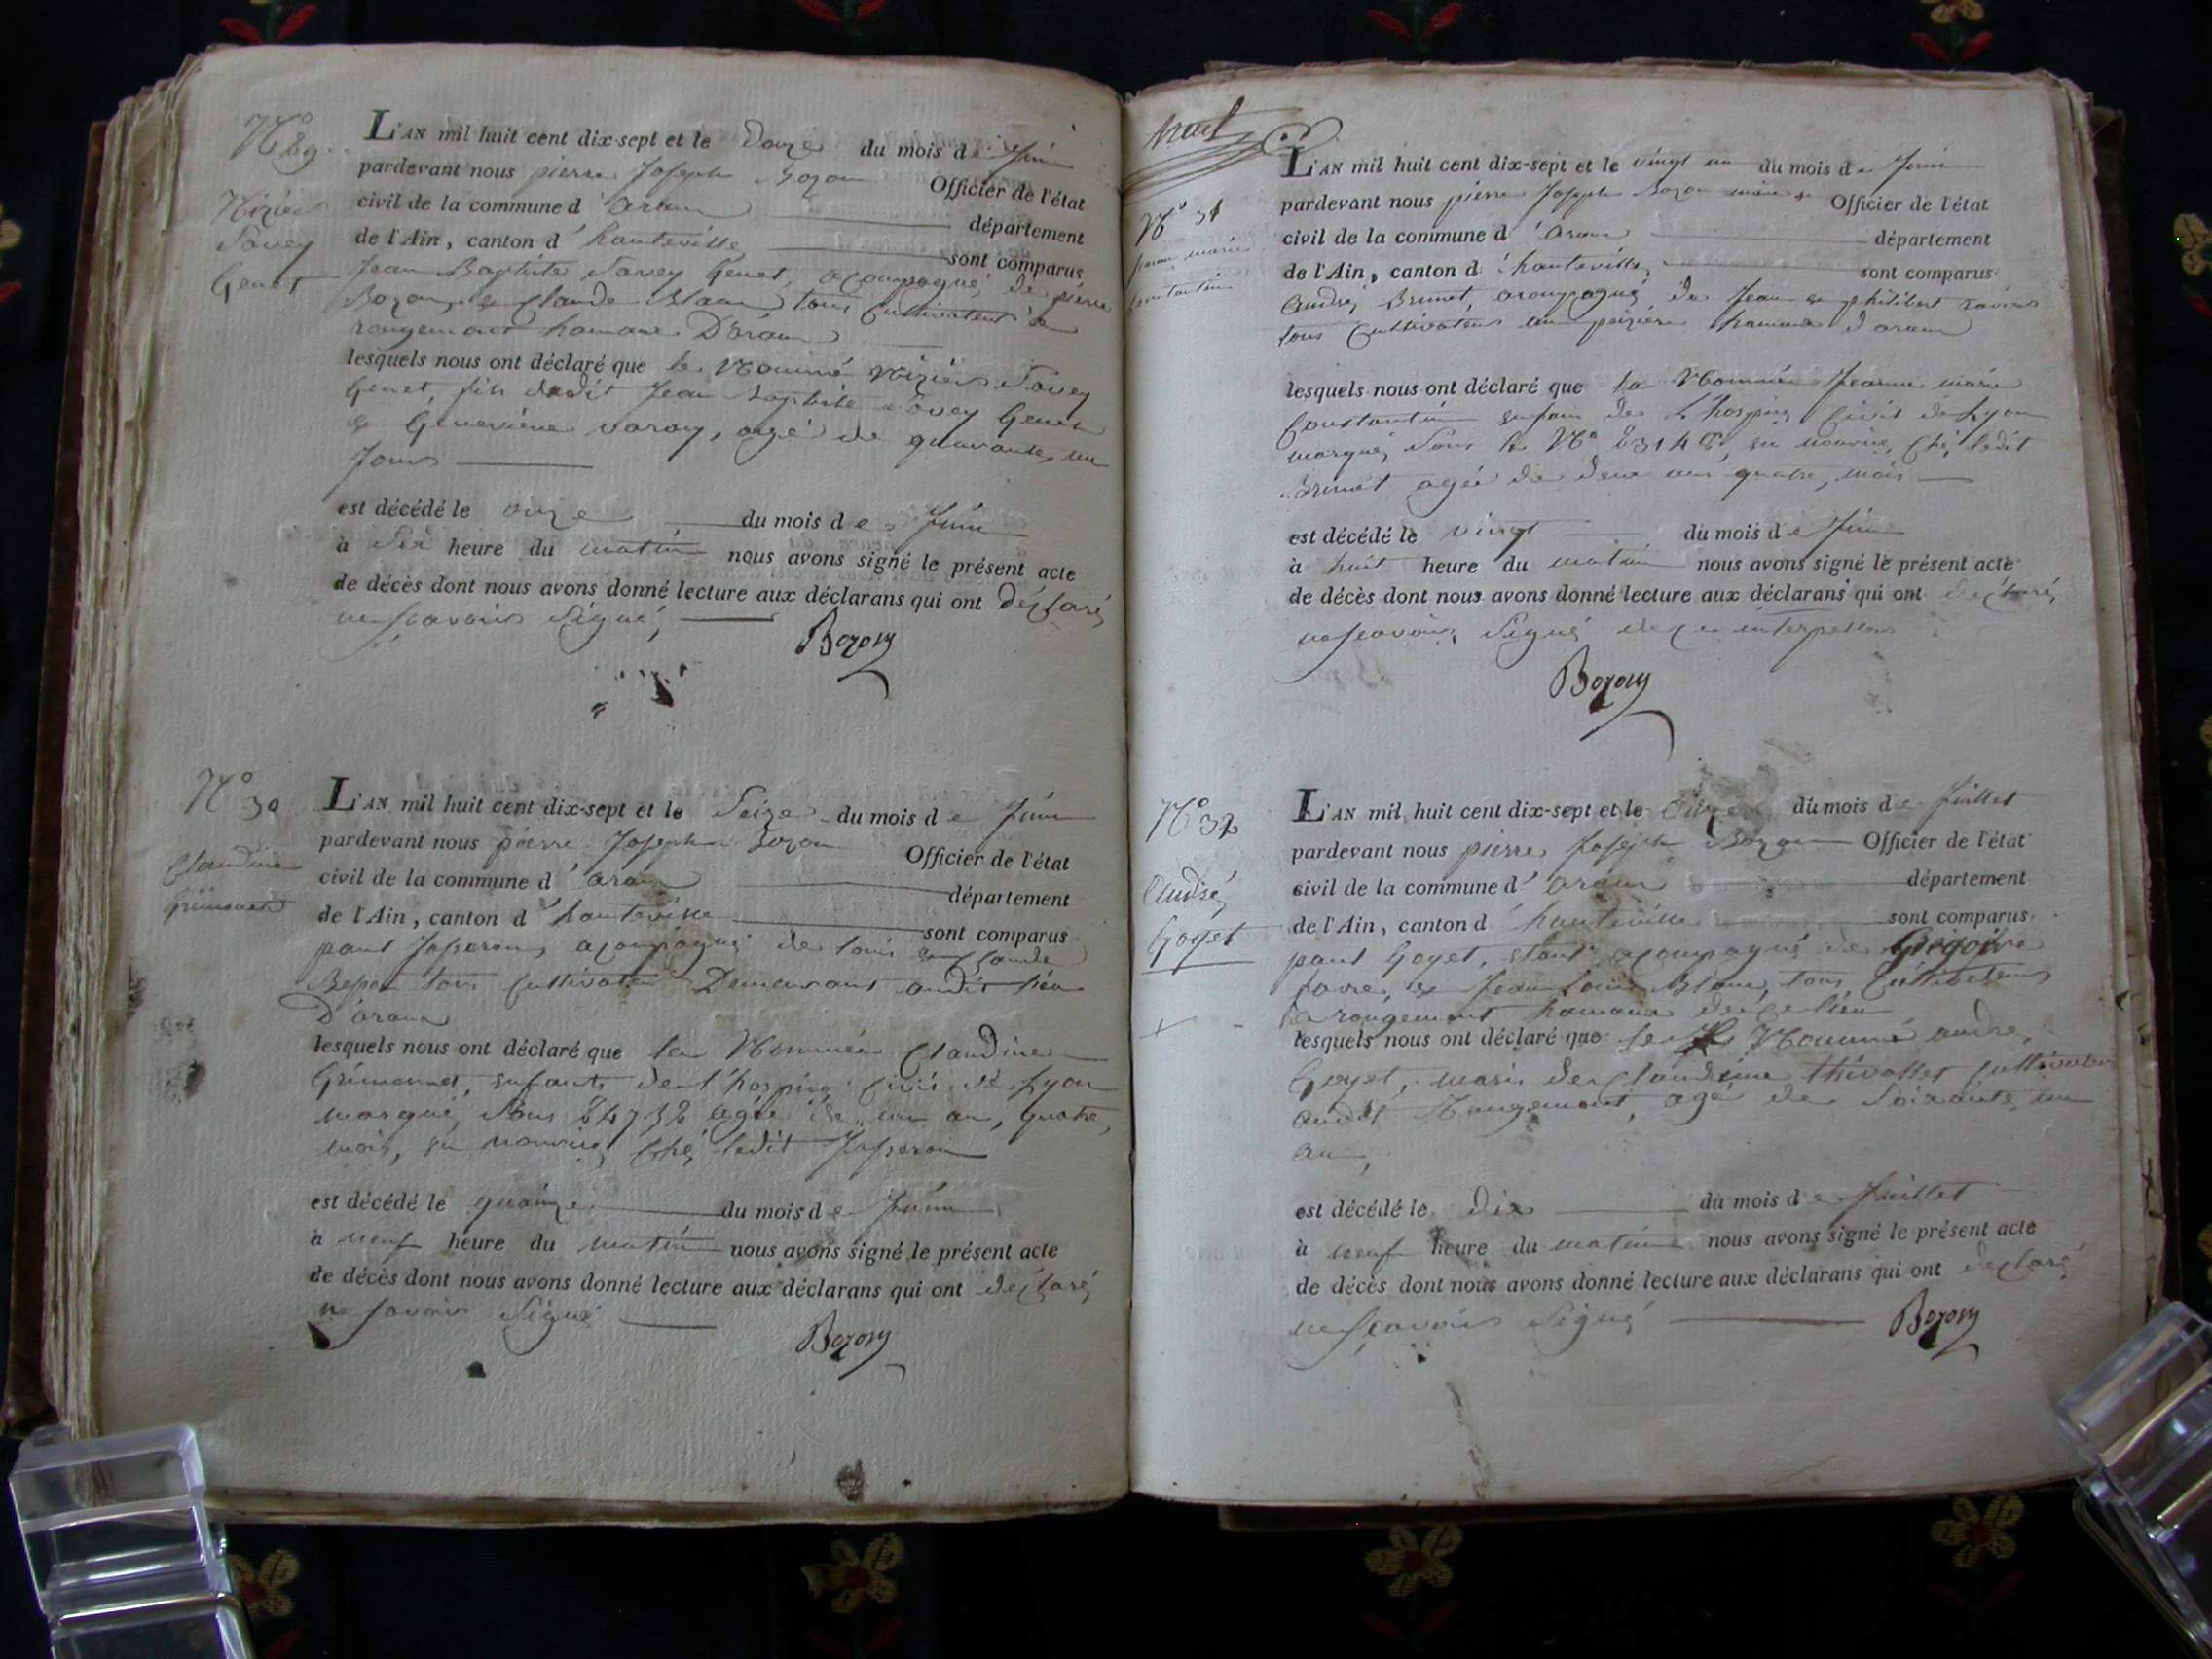 N° 29
Nizier
Savey
Genet
L'AN mil huit cent dix-sept et le douze du mois de Juin
pardevant nous pierre Joseph Bozon Officier de l'état
civil de la commune d'aranc département
de l'Ain, canton d'hauteville sont comparus
Jean Baptiste Savey Genet, acompagné de pierre
Bozon, & Claude Blanc tous Cultivateurs à
rougemont hameau D'aranc
lesquels nous ont déclaré que le Nommé Nizier Savey
Genet, fils dudit Jean Baptiste Savey Genet
& Geneviève varay, agé de quarante un
Jours
est décédé le onze du mois de Juin
à Six heure du matin nous avons signé le présent acte
de décès dont nous avons donné lecture aux déclarans qui ont déclaré
ne scavoir Signé,
Bozon
N° 30
Claudine
Grimonet
L'AN mil huit cent dix-sept et le Seize du mois de Juin
pardevant nous pierre Joseph Bozon Officier de l'état
civil de la commune d'aranc département
de l'Ain, canton d'hauteville sont comparus
paul Josseron, acompagné de louis & Claude
tous Cultivateurs Demeurant audit lieu
D'aranc
lesquels nous ont déclaré que la Nommée Claudine
enfant de l'hospice Civil de Lyon
marqué Sous 24732 agée de un an, quatre
mois, en nourrice Ché ledit Josseron
est décédé le quinze du mois de Juin
à neuf heure du matin nous avons signé le présent acte
de décès dont nous avons donné lecture aux déclarans qui ont déclaré
ne savoir Signé
Bozon
huit
N° 31
Jeanne marie
Constantin
L'AN mil huit cent dix-sept et le vingt un du mois de Juin
pardevant nous pierre Joseph Bozon maire & Officier de l'état
civil de la commune d'aranc département
de l'Ain, canton d'hauteville sont comparus
André Brunet, acompagné de Jean & philibert
tous Cultivateurs en hameau d'aranc
lesquels nous ont déclaré que la Nommée Jeanne marie
Constantin enfant de L'hospice Civil de Lyon
marqué Sous le N° en nourrice Ché ledit
Brunet agée de deux ans quatre mois
est décédé le vingt du mois de Juin
à huit heure du matin nous avons signé le présent acte
de décès dont nous avons donné lecture aux déclarans qui ont déclaré
ne scavoir Signé de ce interpellés
Bozon
N° 32
André
Goyet
L'AN mil huit cent dix-sept et le du mois de Juillet
pardevant nous pierre Joseph Bozon Officier de l'état
civil de la commune d'aranc département
de l'Ain, canton d'hauteville sont comparus
paul Goyet, étant acompagné de Grégoire
favre, & Jean louis Blanc, tous Cultivateurs
à rougemont hameau de ce lieu
lesquels nous ont déclaré que le Nommé andré
Goyet, mari de Claudine thivollet Cultivateur
audit Rougemont, agé de Soixante un
an,
est décédé le Dix du mois de Juillet
à neuf heure du matin nous avons signé le présent acte
de décès dont nous avons donné lecture aux déclarans qui ont déclaré
ne scavoir Signé
Bozon